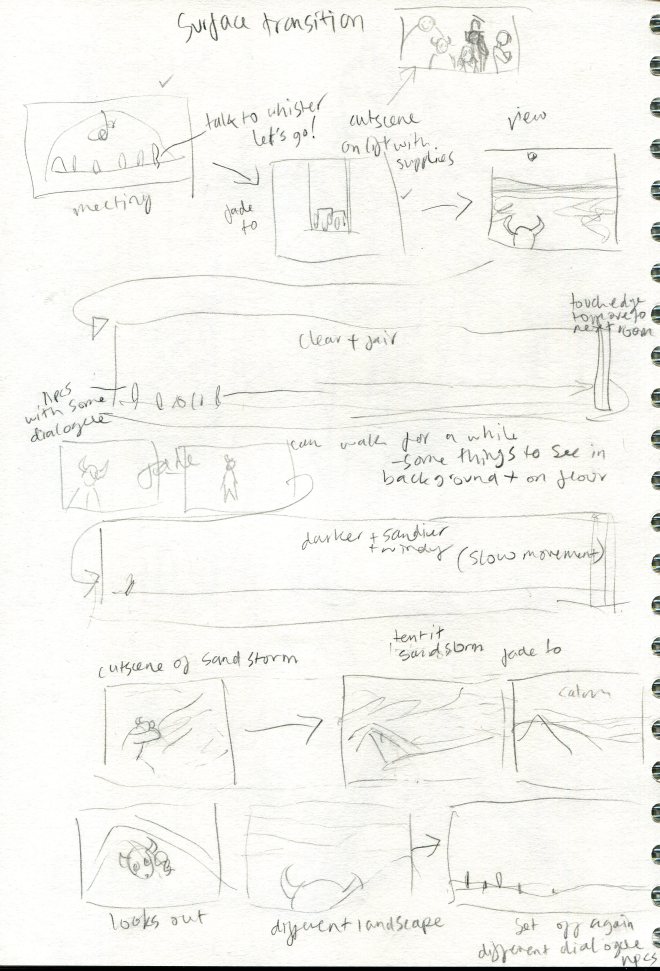 Surface transition
talk to whister
let's go!
meeting
fade
to
cutscene
on lift with
supplies
view
clear + fair
touch edge
to move to
next room
npcs
with some
dialogue
fade
can walk for a while
- some things to see in
background + on floor
darker + sandier
+ windy
(slow movement)
cutscene of sandstorm
tent it
sandstorm
fade to
calm
looks out
different landscape
set off again
different dialogue
npcs